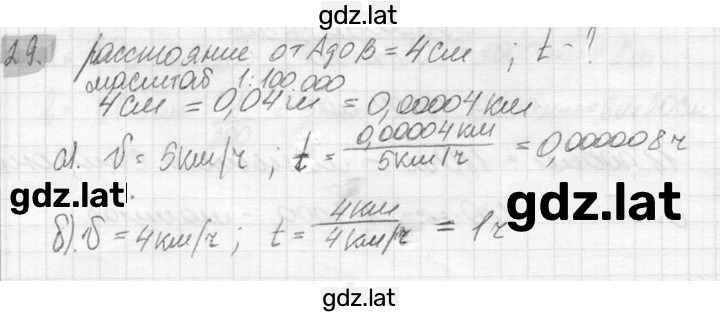 gdz.lat
29. расстояние от А до В = 4 см ; t - ?
масштаб 1:100.000
4 см = 0,04 м = 0,00004 км
а). v = 5 км/ч ; t = 0,00004 км / 5 км/ч = 0,000008 ч
gdz.lat
gdz.lat
б). v = 4 км/ч ; t = 4 км / 4 км/ч = 1 ч
gdz.lat